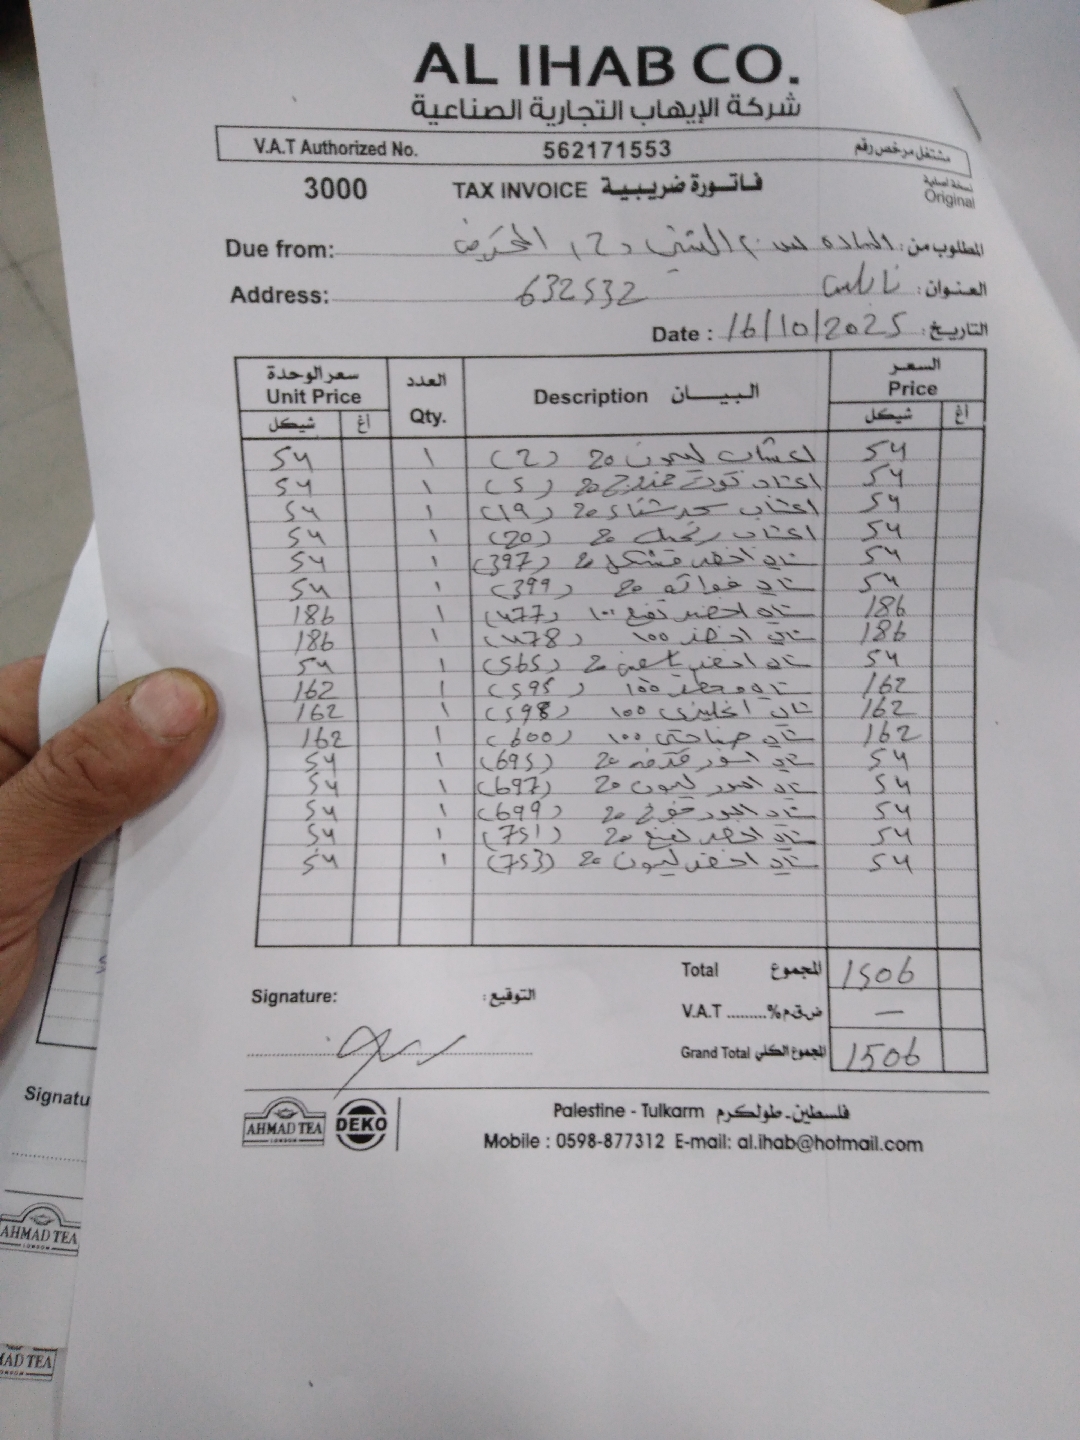 AL IHAB CO.
شركة الإيهاب التجارية الصناعية
V.A.T Authorized No. 562171553 مشتغل مرخص رقم
3000 TAX INVOICE فاتورة ضريبية نسخة اصلية
Original
Due from: المطلوب من: السادة
Address: 632532 العنوان: نابلس
Date : 16/10/2025 التاريخ:
سعر الوحدة العدد البيـــان السعر
Unit Price Qty. Description Price
شيكل أغ شيكل أغ
54 ١ اعشاب ليمون 20 (2) 54
54 ١ اعشاب توت 20 (5) 54
54 ١ اعشاب 20 (19) 54
54 ١ اعشاب زنجبيل 20 (20) 54
54 ١ شاي اخضر مشكل 20 (397) 54
54 ١ شاي فواكه 20 (399) 54
186 ١ شاي اخضر نعنع ١٠٠ (477) 186
186 ١ شاي اخضر 100 (478) 186
54 ١ شاي اخضر ياسمين 20 (565) 54
162 ١ شاي 100 (595) 162
162 ١ شاي انجليزي ١٠٠ (598) 162
162 ١ شاي صباحي ١٠٠ (600) 162
54 ١ شاي اسود قرفه 20 (695) 54
54 ١ شاي اسود ليمون 20 (697) 54
54 ١ شاي اسود خوخ 20 (699) 54
54 ١ شاي اخضر نعنع 20 (751) 54
54 ١ شاي اخضر ليمون 20 (753) 54
Total المجموع 1506
V.A.T .........% ض.ق.م —
Grand Total المجموع الكلي 1506
Signature: التوقيع:
AHMAD TEA
LONDON
DEKO
Palestine - Tulkarm فلسطين - طولكرم
Mobile : 0598-877312 E-mail: al.ihab@hotmail.com
Signatu
AHMAD TEA
LONDON
MAD TEA